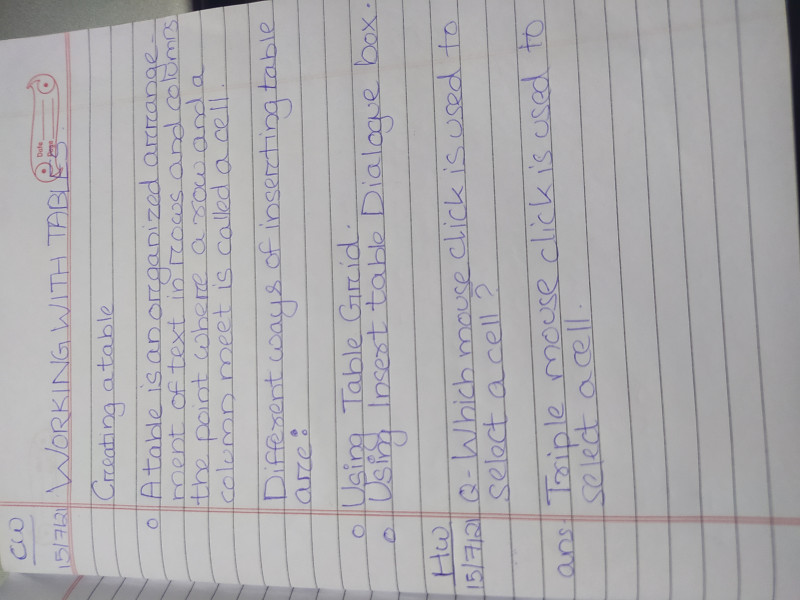 CW
Date
15/7/21 WORKING WITH TABLES.
Creating a table
o A table is an organized arrange-
ment of text in rows and columns
the point where a row and a
column meet is called a cell.
Different ways of inserting table
are:
o Using Table Grid.
o Using Insert table Dialogue box.
HW
15/7/21 Q- Which mouse click is used to
select a cell?
ans. Triple mouse click is used to
select a cell.